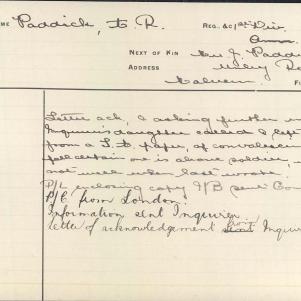 ME Paddick, E. R. REG. &c 1st Div.
Amm.
NEXT OF KIN Mr J. Paddi
ADDRESS Wiley Ro
Malvern.
Letter ack, & asking further in
Inquirer's daughter called & left
from a paper, of convalescen
one is above soldier,
not well when last wrote.
P/L enclosing copy I/B sent Con
P/C from London.
Information sent Inquirer
Letter of acknowledgement sent from Inquir